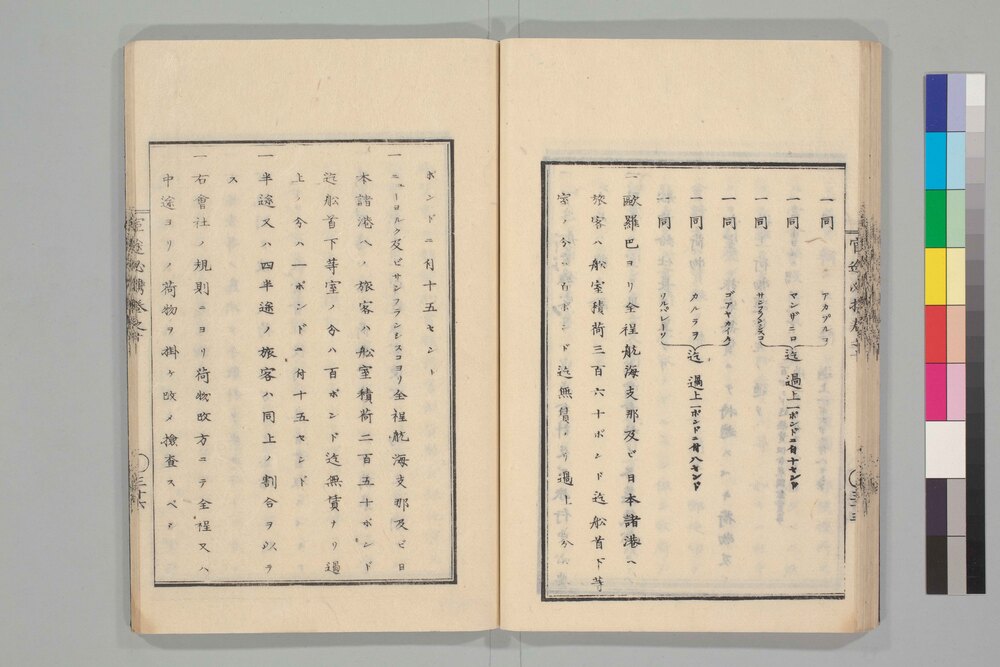 一同 アカプルヲ
一同 マンザニロ
一同 サンフランシスコ
迄 過上一ポンドニ付十セント
一同 ゴアヤカイル
一同 カルラヲ
一同 リルパレーソ
迄 過上一ポンドニ付八セント
一歐羅巴ヨリ全程航海支那及ビ日本諸港ヘノ
旅客ハ船室積荷三百六十ポンド迄船首下等
室ノ分ハ百ポンド迄無賃ナリ過上ノ分ハ
ポンドニ付十五セント
一ニューヨルク及ビサンフランシスコヨリ全程航海支那及ビ日
本諸港ヘノ旅客ハ船室積荷二百五十ポンド
迄船首下等室ノ分ハ百ポンド迄無賃ナリ過
上ノ分ハ一ポンドニ付十五セント
一半途又ハ四半途ノ旅客ハ同上ノ割合ヲ以テ
ス
一右會社ノ規則ニヨリ荷物改方ニテ全程又ハ
中途ヨリノ荷物ヲ掛ケ改メ檢査スベシ
三十六